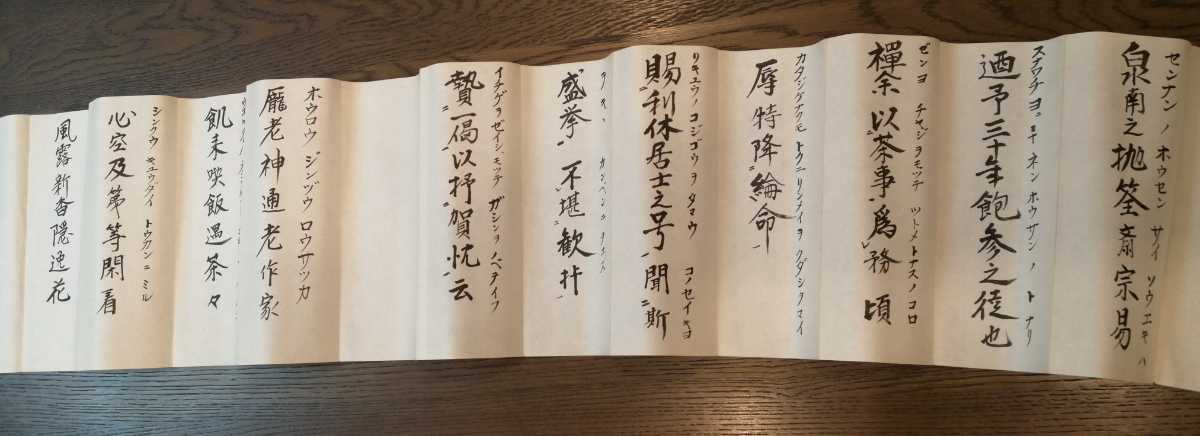 センナン ノ ホウセン サイ ソウエキ ハ
泉南之抛筌斎宗易
スナワチ ヨニ ネン ホウサン ノ ト ナリ
迺予三十年飽参之徒也
ゼンヨ チャジヲモッテ ツトメトナスノコロ
禪余以茶事爲務頃
カタジケナクモ トクニリンメイヲ クダシタマイ
辱特降綸命
リキュウノコジゴウヲタマウ コノセイキョ
賜利休居士之号聞斯
盛挙不堪歓抃
イチゲヲゼイシモッテ ガシンヲノベテイフ
贄一偈以抒賀忱云
ホウロウ ジンヅウ ロウサッカ
龐老神通老作家
飢来喫飯遇茶々
シンクウ キュウダイ トウカンニミル
心空及第等閑看
風露新香隠逸花